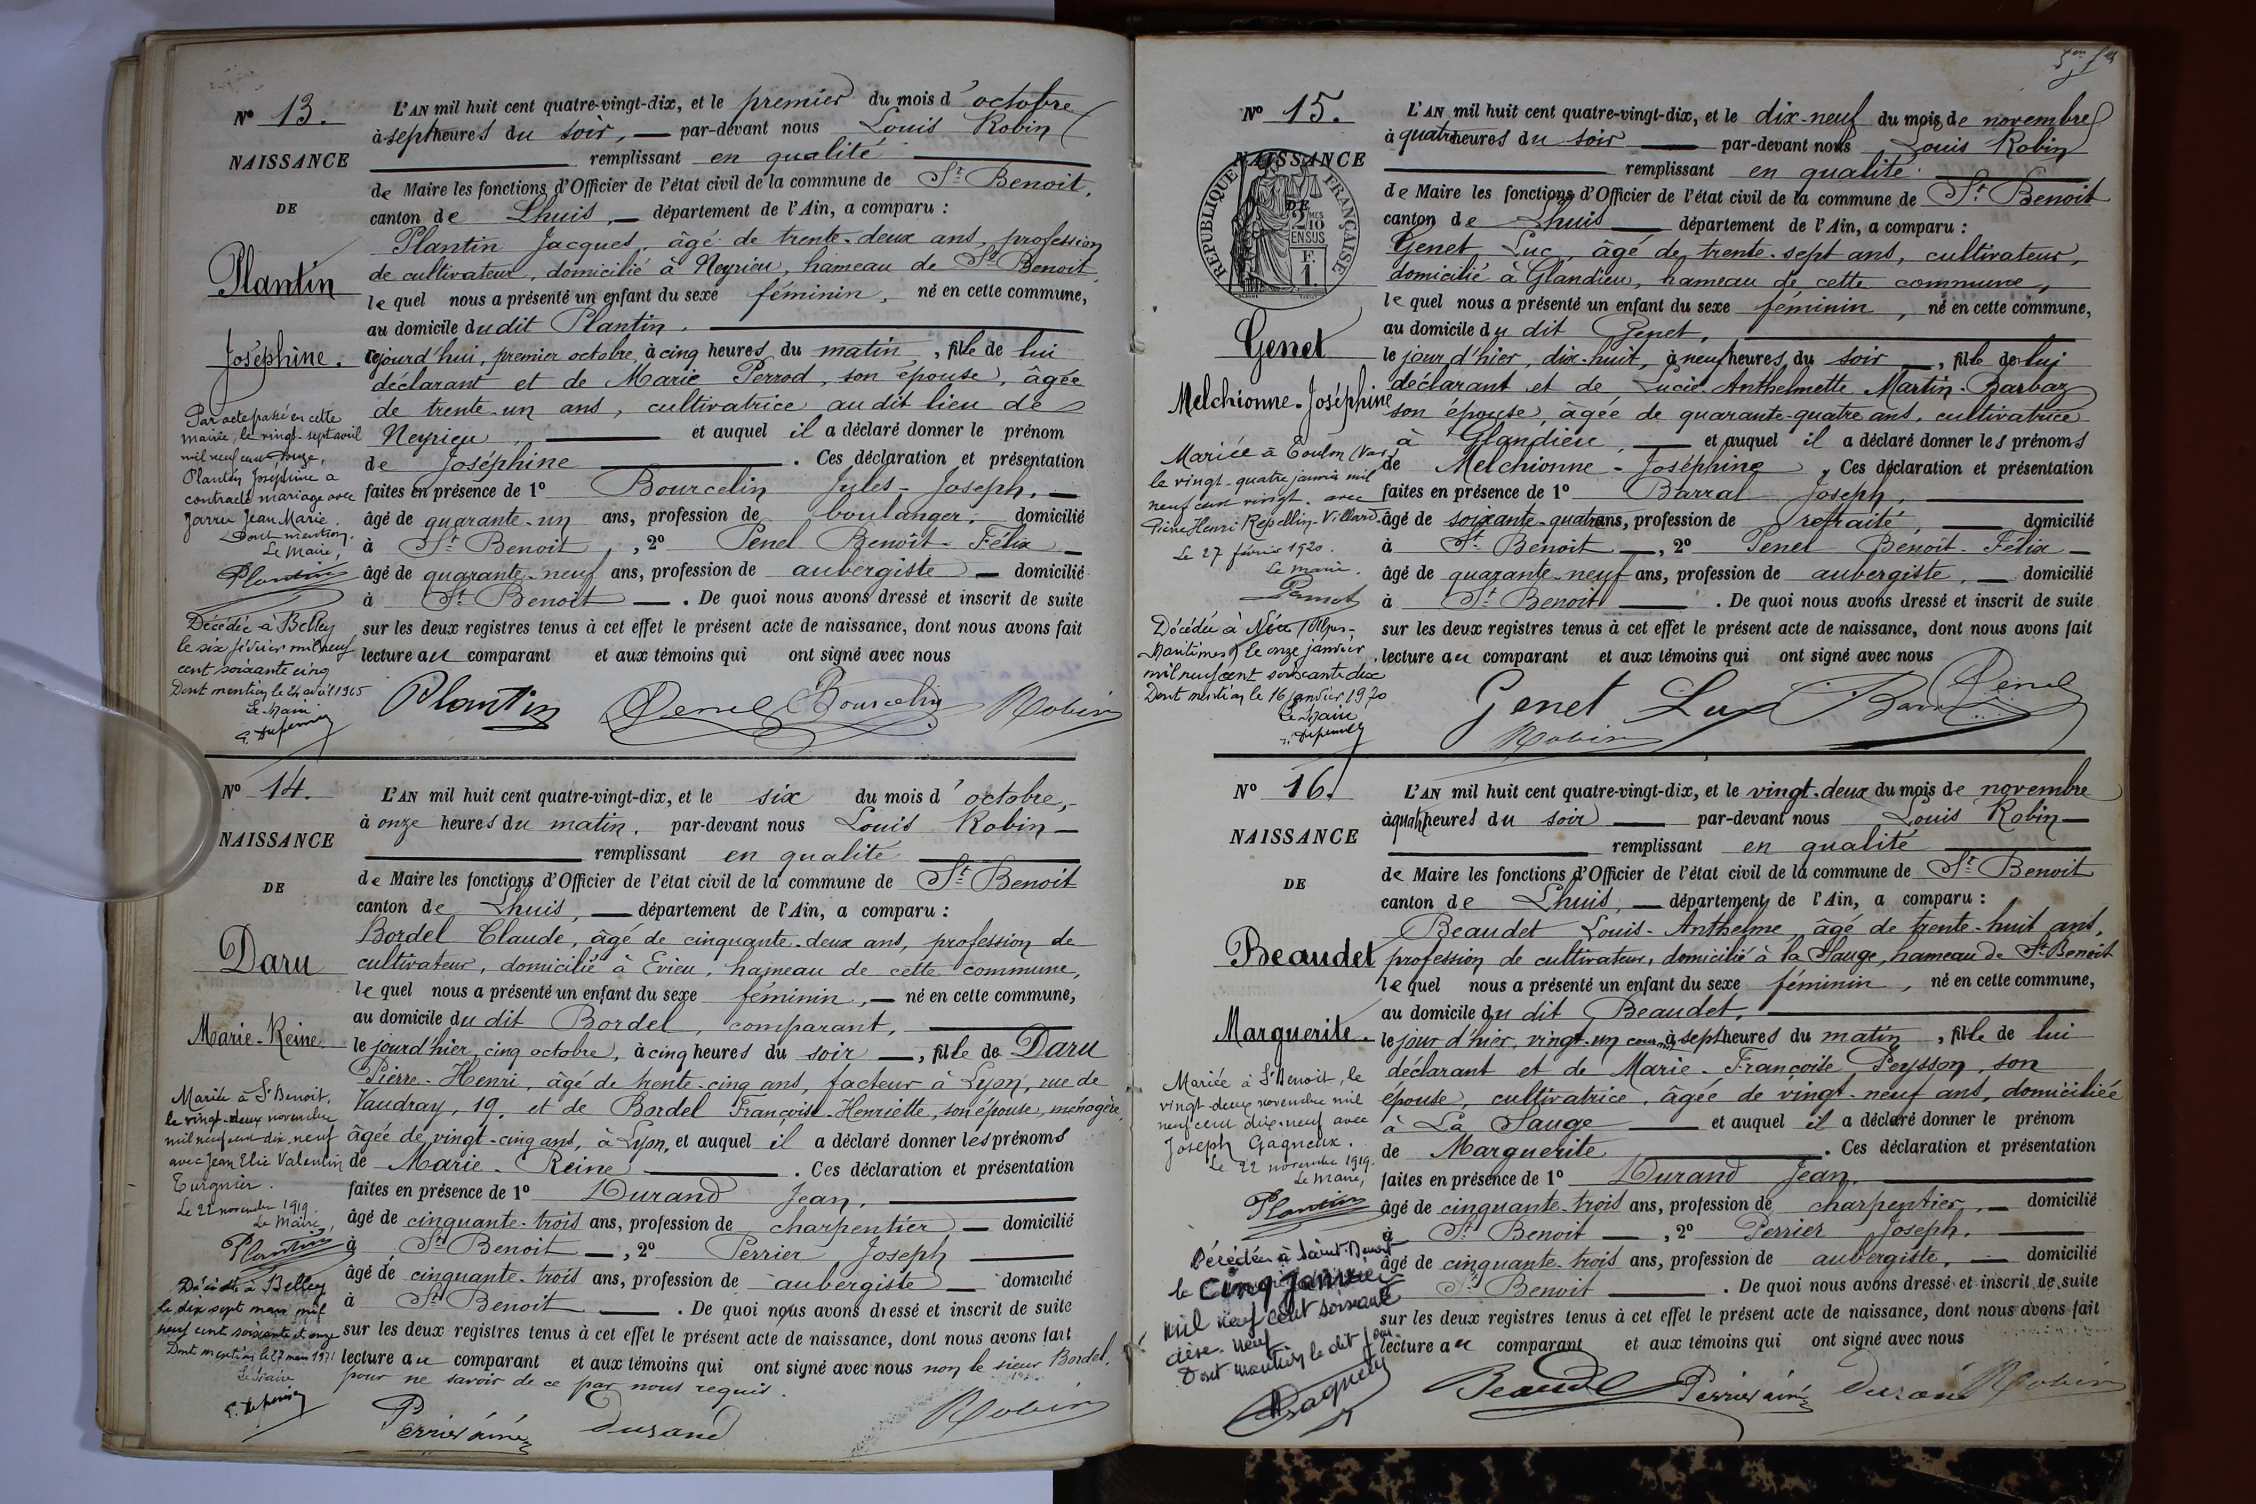 Nº 13.
NAISSANCE
DE
Plantin
Joséphine.
Par acte passé en cette
mairie, le vingt-sept avril
mil neuf cent onze,
Plantin Joséphine a
contracté mariage avec
Jarru Jean Marie.
Dont mention.
Le Maire,
Plantin
Décédée à Belley
le six février mil neuf
cent soixante cinq
Dont mention le 24 avril 1965
Le Maire
L'AN mil huit cent quatre-vingt-dix, et le premier du mois d'octobre
à sept heures du soir, par-devant nous Louis Robin
remplissant en qualité
de Maire les fonctions d'Officier de l'état civil de la commune de St Benoit,
canton de Lhuis, département de l'Ain, a comparu :
Plantin Jacques, âgé de trente-deux ans, profession
de cultivateur, domicilié à Neyrieu, hameau de St Benoit,
lequel nous a présenté un enfant du sexe féminin, né en cette commune,
au domicile dudit Plantin,
cejourd'hui, premier octobre, à cinq heures du matin, fille de lui
déclarant et de Marie Perrod, son épouse, âgée
de trente-un ans, cultivatrice audit lieu de
Neyrieu, et auquel il a déclaré donner le prénom
de Joséphine. Ces déclaration et présentation
faites en présence de 1º Bourcelin Jules-Joseph,
âgé de quarante-un ans, profession de boulanger, domicilié
à St Benoit, 2º Penel Benoît-Félix
âgé de quarante-neuf ans, profession de aubergiste domicilié
à St Benoit. De quoi nous avons dressé et inscrit de suite
sur les deux registres tenus à cet effet le présent acte de naissance, dont nous avons fait
lecture au comparant et aux témoins qui ont signé avec nous
Plantin Penel Bourcelin Robin
Nº 14.
NAISSANCE
DE
Daru
Marie-Reine.
Mariée à St Benoit,
le vingt-deux novembre
mil neuf cent dix-neuf
avec Jean Elie Valentin
Turgnier.
Le 22 novembre 1919.
Le Maire,
Plantin
Décédée à Belley
le dix sept mars mil
neuf cent soixante et onze
Dont mention le 27 mars 1971
Le Maire
L'AN mil huit cent quatre-vingt-dix, et le six du mois d'octobre,
à onze heures du matin, par-devant nous Louis Robin
remplissant en qualité
de Maire les fonctions d'Officier de l'état civil de la commune de St Benoit
canton de Lhuis, département de l'Ain, a comparu :
Bordel Claude, âgé de cinquante-deux ans, profession de
cultivateur, domicilié à Evieu, hameau de cette commune,
lequel nous a présenté un enfant du sexe féminin, né en cette commune,
au domicile dudit Bordel, comparant,
le jour d'hier, cinq octobre, à cinq heures du soir, fille de Daru
Pierre-Henri, âgé de trente-cinq ans, facteur à Lyon, rue de
Vaudray, 19, et de Bordel Françoise-Henriette, son épouse, ménagère,
âgée de vingt-cinq ans, à Lyon, et auquel il a déclaré donner les prénoms
de Marie-Reine. Ces déclaration et présentation
faites en présence de 1º Durand Jean,
âgé de cinquante-trois ans, profession de charpentier domicilié
à St Benoit, 2º Perrier Joseph
âgé de cinquante-trois ans, profession de aubergiste domicilié
à St Benoit. De quoi nous avons dressé et inscrit de suite
sur les deux registres tenus à cet effet le présent acte de naissance, dont nous avons fait
lecture au comparant et aux témoins qui ont signé avec nous non le sieur Bordel,
pour ne savoir de ce par nous requis.
Perrier aîné Durand Robin
Nº 15.
NAISSANCE
DE
RÉPUBLIQUE FRANÇAISE
2/10
EN SUS
F.
1
Genet
Melchionne-Joséphine
Mariée à Toulon (Var)
le vingt-quatre janvier mil
neuf cent vingt, avec
Pierre Henri Repellin-Villard.
Le 27 février 1920.
Le Maire.
Décédée à Nice (Alpes-
Maritimes) le onze janvier
mil neuf cent soixante dix
Dont mention le 16 janvier 1970
Le Maire
L'AN mil huit cent quatre-vingt-dix, et le dix-neuf du mois de novembre
à quatre heures du soir par-devant nous Louis Robin
remplissant en qualité
de Maire les fonctions d'Officier de l'état civil de la commune de St Benoit
canton de Lhuis département de l'Ain, a comparu :
Genet Luc, âgé de trente-sept ans, cultivateur,
domicilié à Glandieu, hameau de cette commune,
lequel nous a présenté un enfant du sexe féminin, né en cette commune,
au domicile du dit Genet,
le jour d'hier, dix-huit, à neuf heures du soir, fille de lui
déclarant et de Lucie-Anthelmette Martin-Barbaz
son épouse, âgée de quarante-quatre ans, cultivatrice
à Glandieu, et auquel il a déclaré donner les prénoms
de Melchionne-Joséphine, Ces déclaration et présentation
faites en présence de 1º Barral Joseph,
âgé de soixante-quatre ans, profession de retraité, domicilié
à St Benoit, 2º Penel Benoît-Félix
âgé de quarante-neuf ans, profession de aubergiste, domicilié
à St Benoit. De quoi nous avons dressé et inscrit de suite
sur les deux registres tenus à cet effet le présent acte de naissance, dont nous avons fait
lecture au comparant et aux témoins qui ont signé avec nous
Genet Luc Penel
Robin
Nº 16.
NAISSANCE
DE
Beaudet
Marguerite.
Mariée à St Benoit, le
vingt-deux novembre mil
neuf cent dix-neuf avec
Joseph Gagneux.
Le 22 novembre 1919.
Le Maire,
Plantin
Décédée à Saint-Benoit
le cinq janvier
mil neuf cent soixante
dix-neuf
Dont mention le dit jour
L'AN mil huit cent quatre-vingt-dix, et le vingt-deux du mois de novembre
à quatre heures du soir par-devant nous Louis Robin
remplissant en qualité
de Maire les fonctions d'Officier de l'état civil de la commune de St Benoit
canton de Lhuis, département de l'Ain, a comparu :
Beaudet Louis-Anthelme, âgé de trente-huit ans,
profession de cultivateur, domicilié à la Sauge, hameau de St Benoit
lequel nous a présenté un enfant du sexe féminin, né en cette commune,
au domicile du dit Beaudet,
le jour d'hier, vingt-un courant, à sept heures du matin, fille de lui
déclarant et de Marie-Françoise Peysson, son
épouse, cultivatrice, âgée de vingt-neuf ans, domiciliée
à La Sauge et auquel il a déclaré donner le prénom
de Marguerite. Ces déclaration et présentation
faites en présence de 1º Durand Jean,
âgé de cinquante-trois ans, profession de charpentier, domicilié
à St Benoit, 2º Perrier Joseph,
âgé de cinquante-trois ans, profession de aubergiste, domicilié
St Benoit. De quoi nous avons dressé et inscrit de suite
sur les deux registres tenus à cet effet le présent acte de naissance, dont nous avons fait
lecture au comparant et aux témoins qui ont signé avec nous
Beaudet Perrier aîné Durand Robin